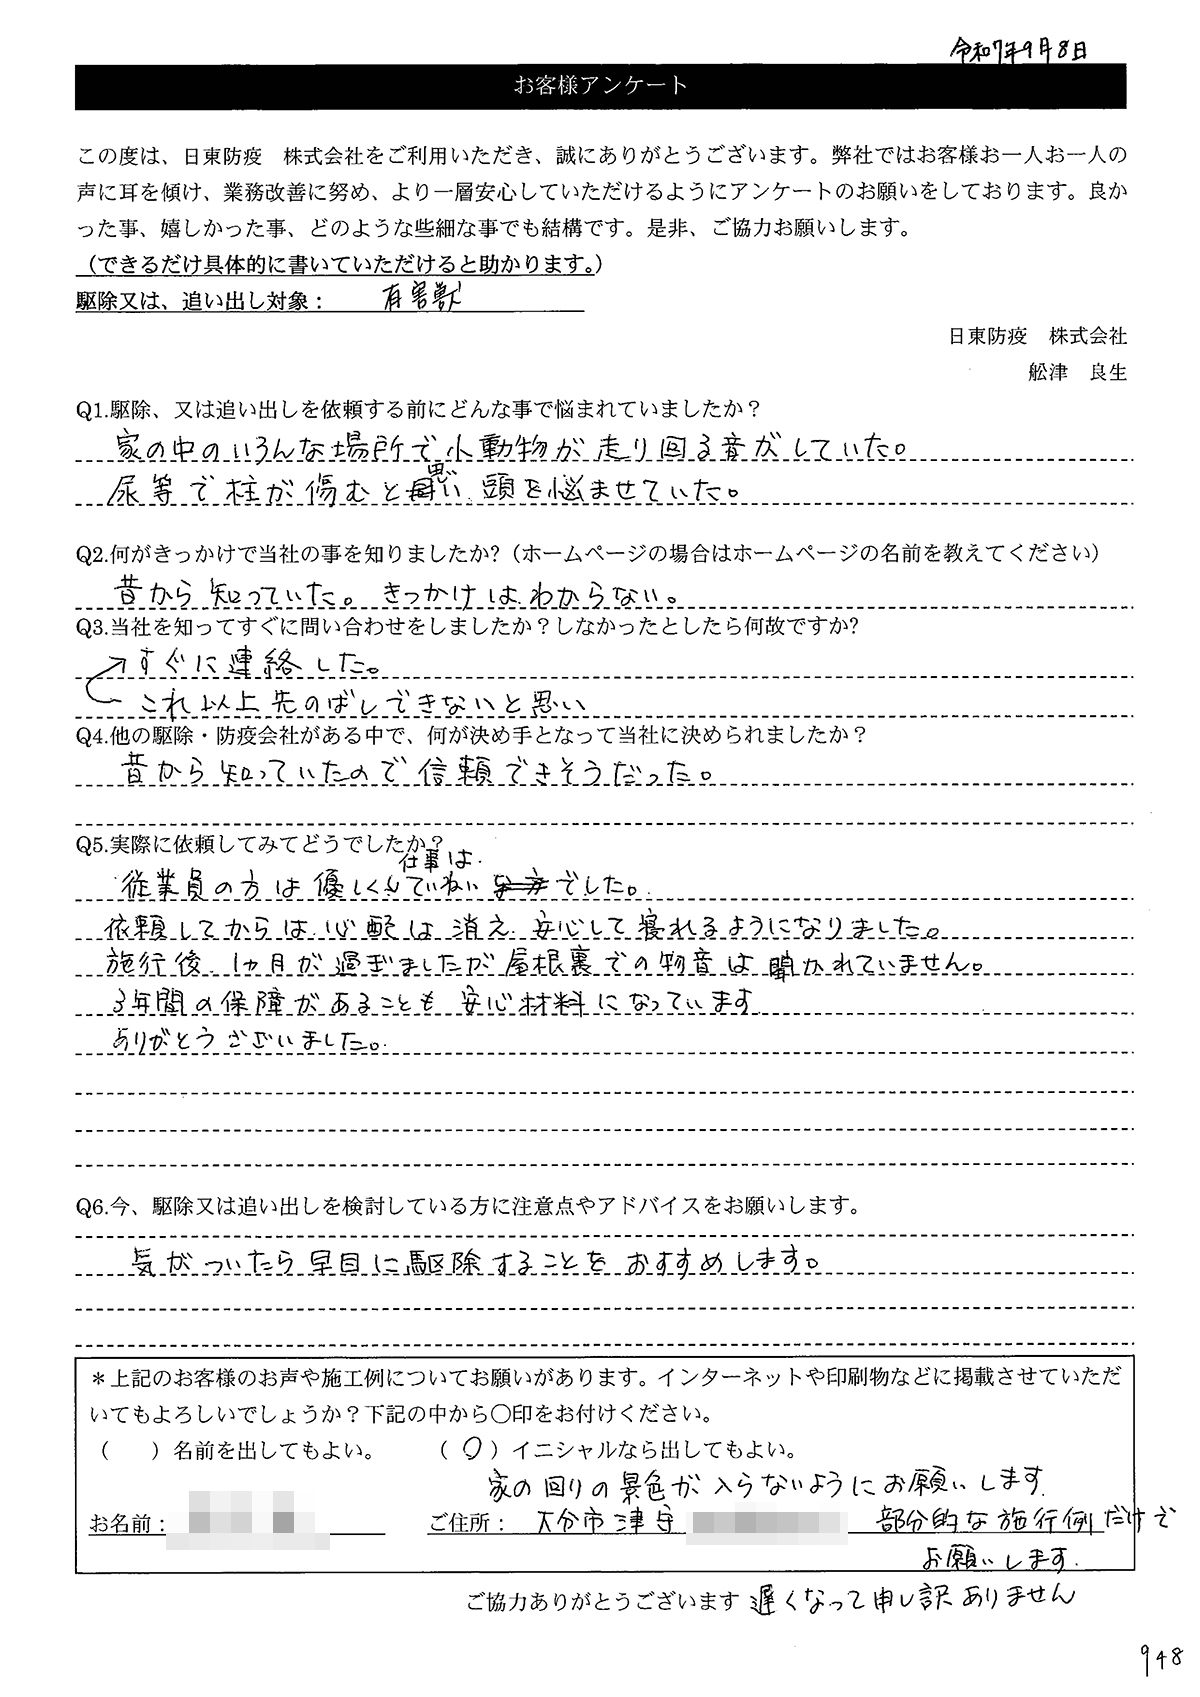 令和7年9月8日
お客様アンケート
この度は、日東防疫　株式会社をご利用いただき、誠にありがとうございます。弊社ではお客様お一人お一人の
声に耳を傾け、業務改善に努め、より一層安心していただけるようにアンケートのお願いをしております。良か
った事、嬉しかった事、どのような些細な事でも結構です。是非、ご協力お願いします。
（できるだけ具体的に書いていただけると助かります。）
駆除又は、追い出し対象：　有害獣
日東防疫　株式会社
舩津　良生
Q1.駆除、又は追い出しを依頼する前にどんな事で悩まれていましたか？
家の中のいろんな場所で小動物が走り回る音がしていた。
尿等で柱が傷むと思い頭を悩ませていた。
Q2.何がきっかけで当社の事を知りましたか?（ホームページの場合はホームページの名前を教えてください）
昔から知っていた。きっかけはわからない。
Q3.当社を知ってすぐに問い合わせをしましたか？しなかったとしたら何故ですか?
すぐに連絡した。
これ以上先のばしできないと思い
Q4.他の駆除・防疫会社がある中で、何が決め手となって当社に決められましたか？
昔から知っていたので信頼できそうだった。
Q5.実際に依頼してみてどうでしたか？
従業員の方は優しく仕事はていねいでした。
依頼してからは心配は消え安心して寝れるようになりました。
施行後、1ヶ月が過ぎましたが屋根裏での物音は聞かれていません。
3年間の保障があることも安心材料になっています
ありがとうございました。
Q6.今、駆除又は追い出しを検討している方に注意点やアドバイスをお願いします。
気がついたら早目に駆除することをおすすめします。
＊上記のお客様のお声や施工例についてお願いがあります。インターネットや印刷物などに掲載させていただ
いてもよろしいでしょうか？下記の中から○印をお付けください。
（　　）名前を出してもよい。　　（○）イニシャルなら出してもよい。
家の回りの景色が入らないようにお願いします
お名前：　　ご住所：　大分市津守　部分的な施行例だけで
お願いします.
ご協力ありがとうございます 遅くなって申し訳ありません
948